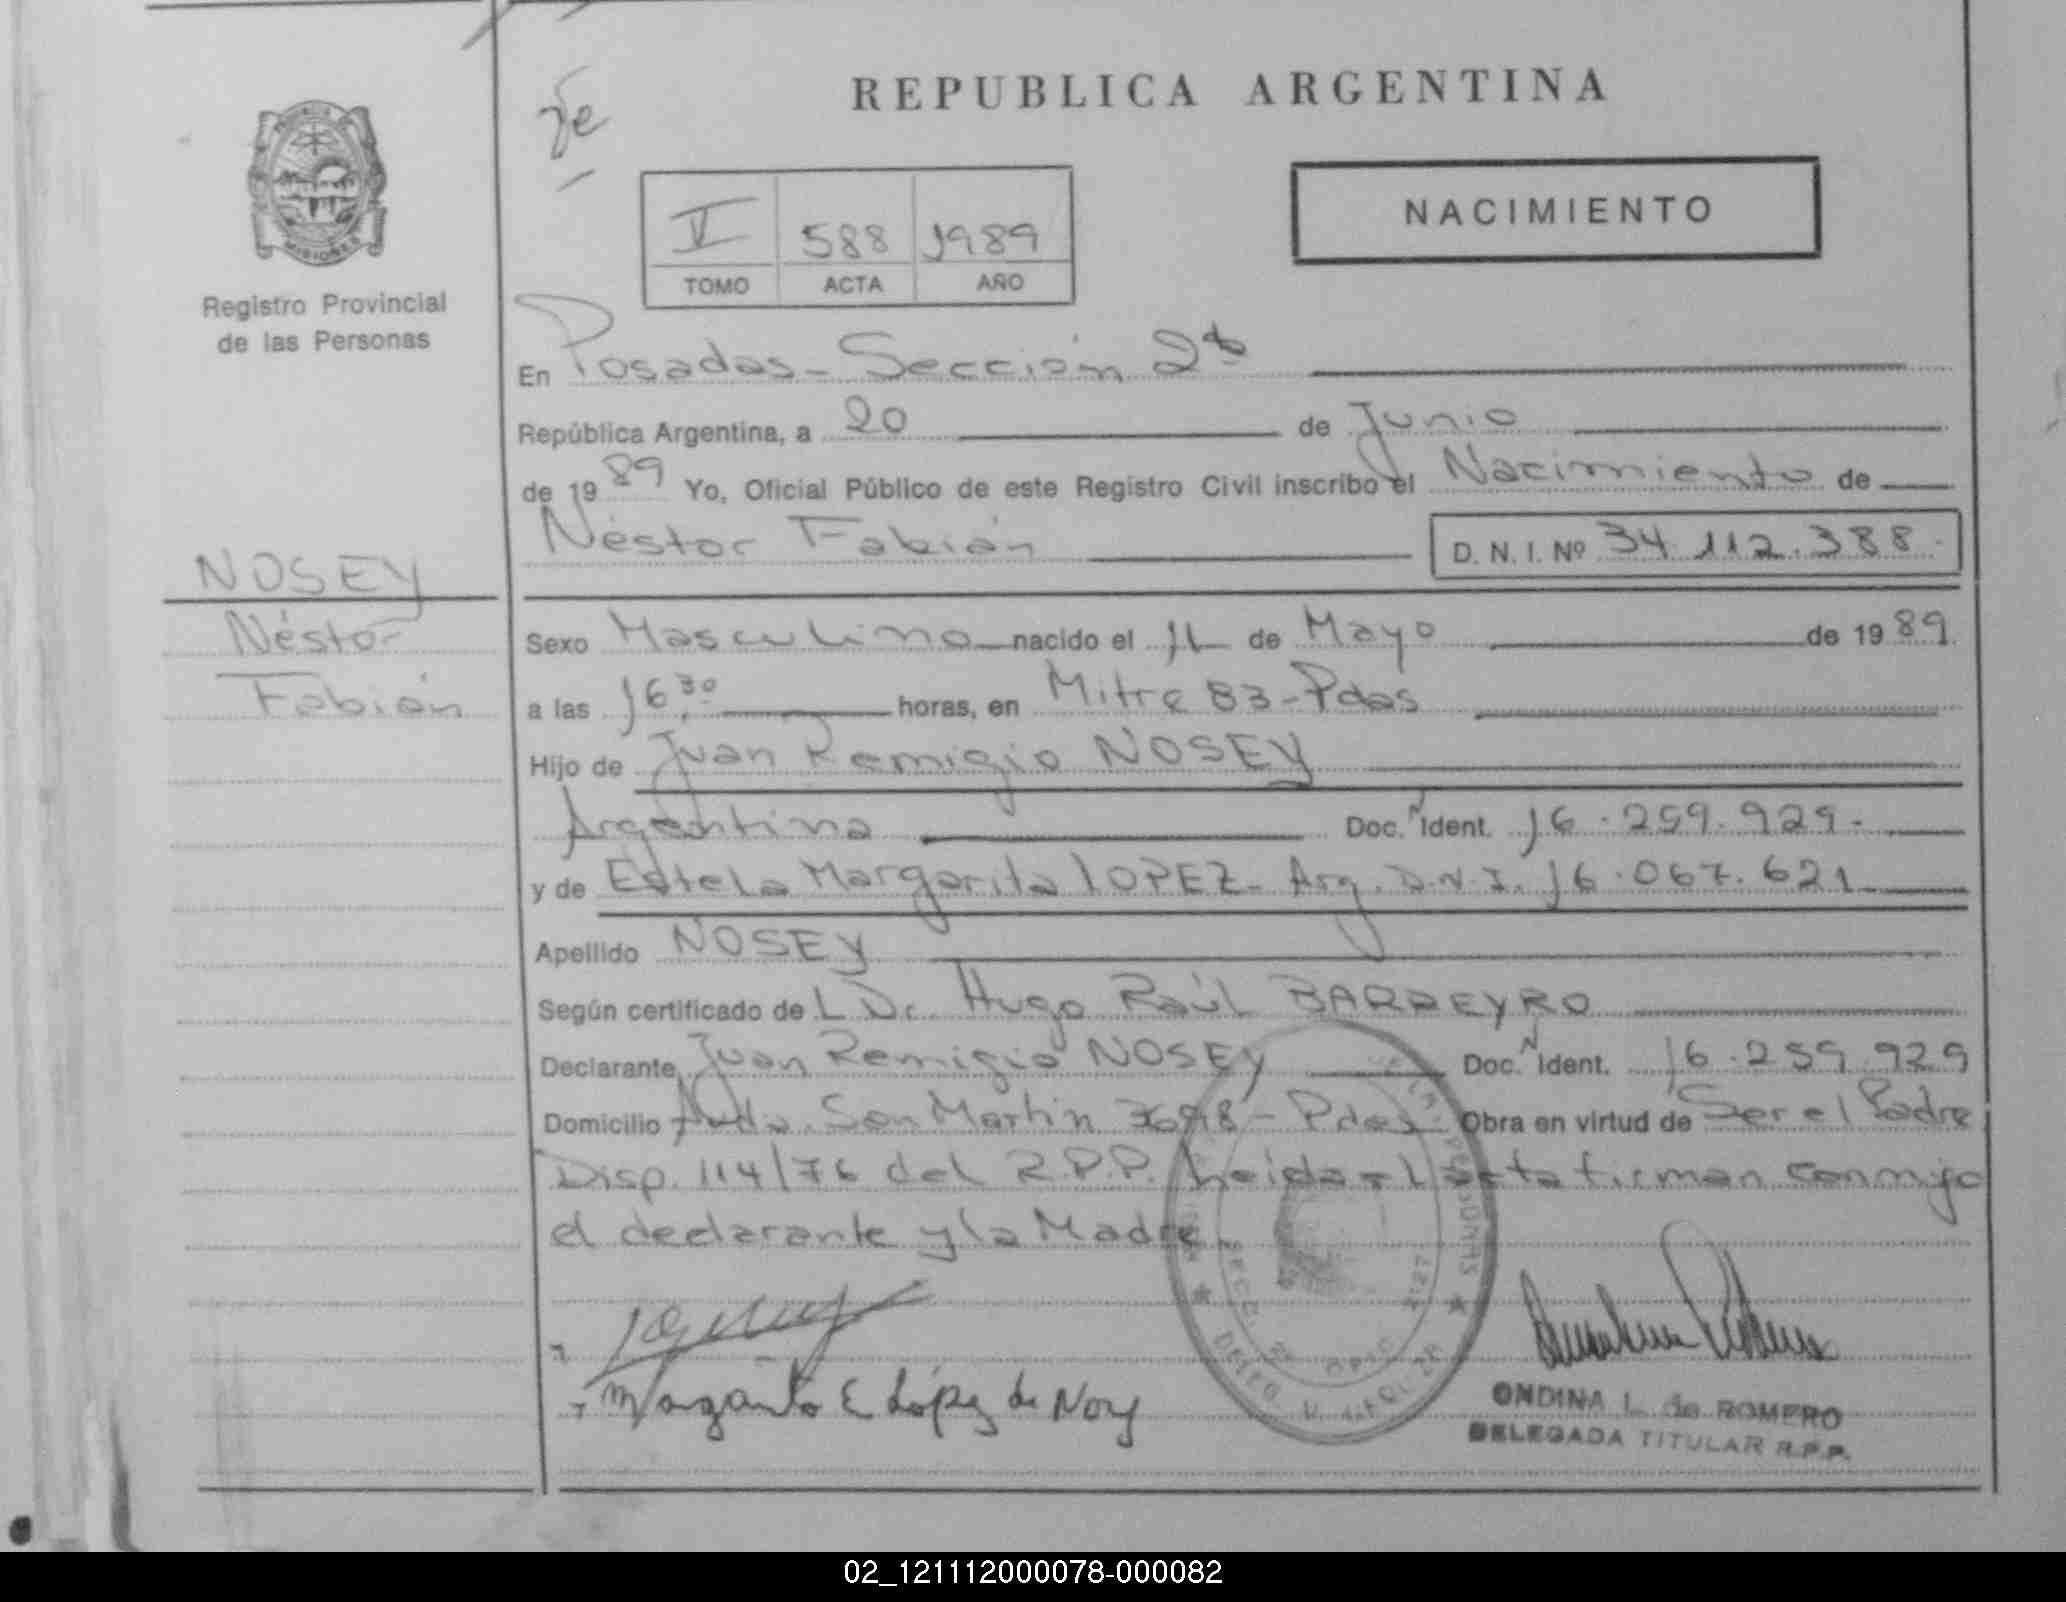 REPUBLICA ARGENTINA
NACIMIENTO
V 588 1989
TOMO ACTA AÑO
MISIONES
Registro Provincial
de las Personas
En Posadas - Sección 2ª
República Argentina, a 20 de Junio
de 1989 Yo, Oficial Público de este Registro Civil inscribo el Nacimiento de
Néstor Fabián D. N. I. Nº 34.112.388.
NOSEY
Néstor
Fabián
Sexo Masculino nacido el 11 de Mayo de 1989.
a las 16,30 horas, en Mitre 83 - Pdas
Hijo de Juan Remigio NOSEY
Argentina Doc. N Ident. 16.259.929.
y de Estela Margarita LOPEZ - Arg. D.N.I. 16.067.621
Apellido NOSEY
Según certificado de L Dr. Hugo Raúl BARREYRO
Declarante Juan Remigio NOSEY Doc. N Ident. 16.259.929
Domicilio Avda. San Martín 3698 - Pdas - Obra en virtud de Ser el Padre
Disp. 114/76 del R.P.P. Leída el acta firman conmigo
el declarante y la Madre.
Margarita E López de Nosey
ONDINA L. de ROMERO
DELEGADA TITULAR R.P.P.
02_121112000078-000082